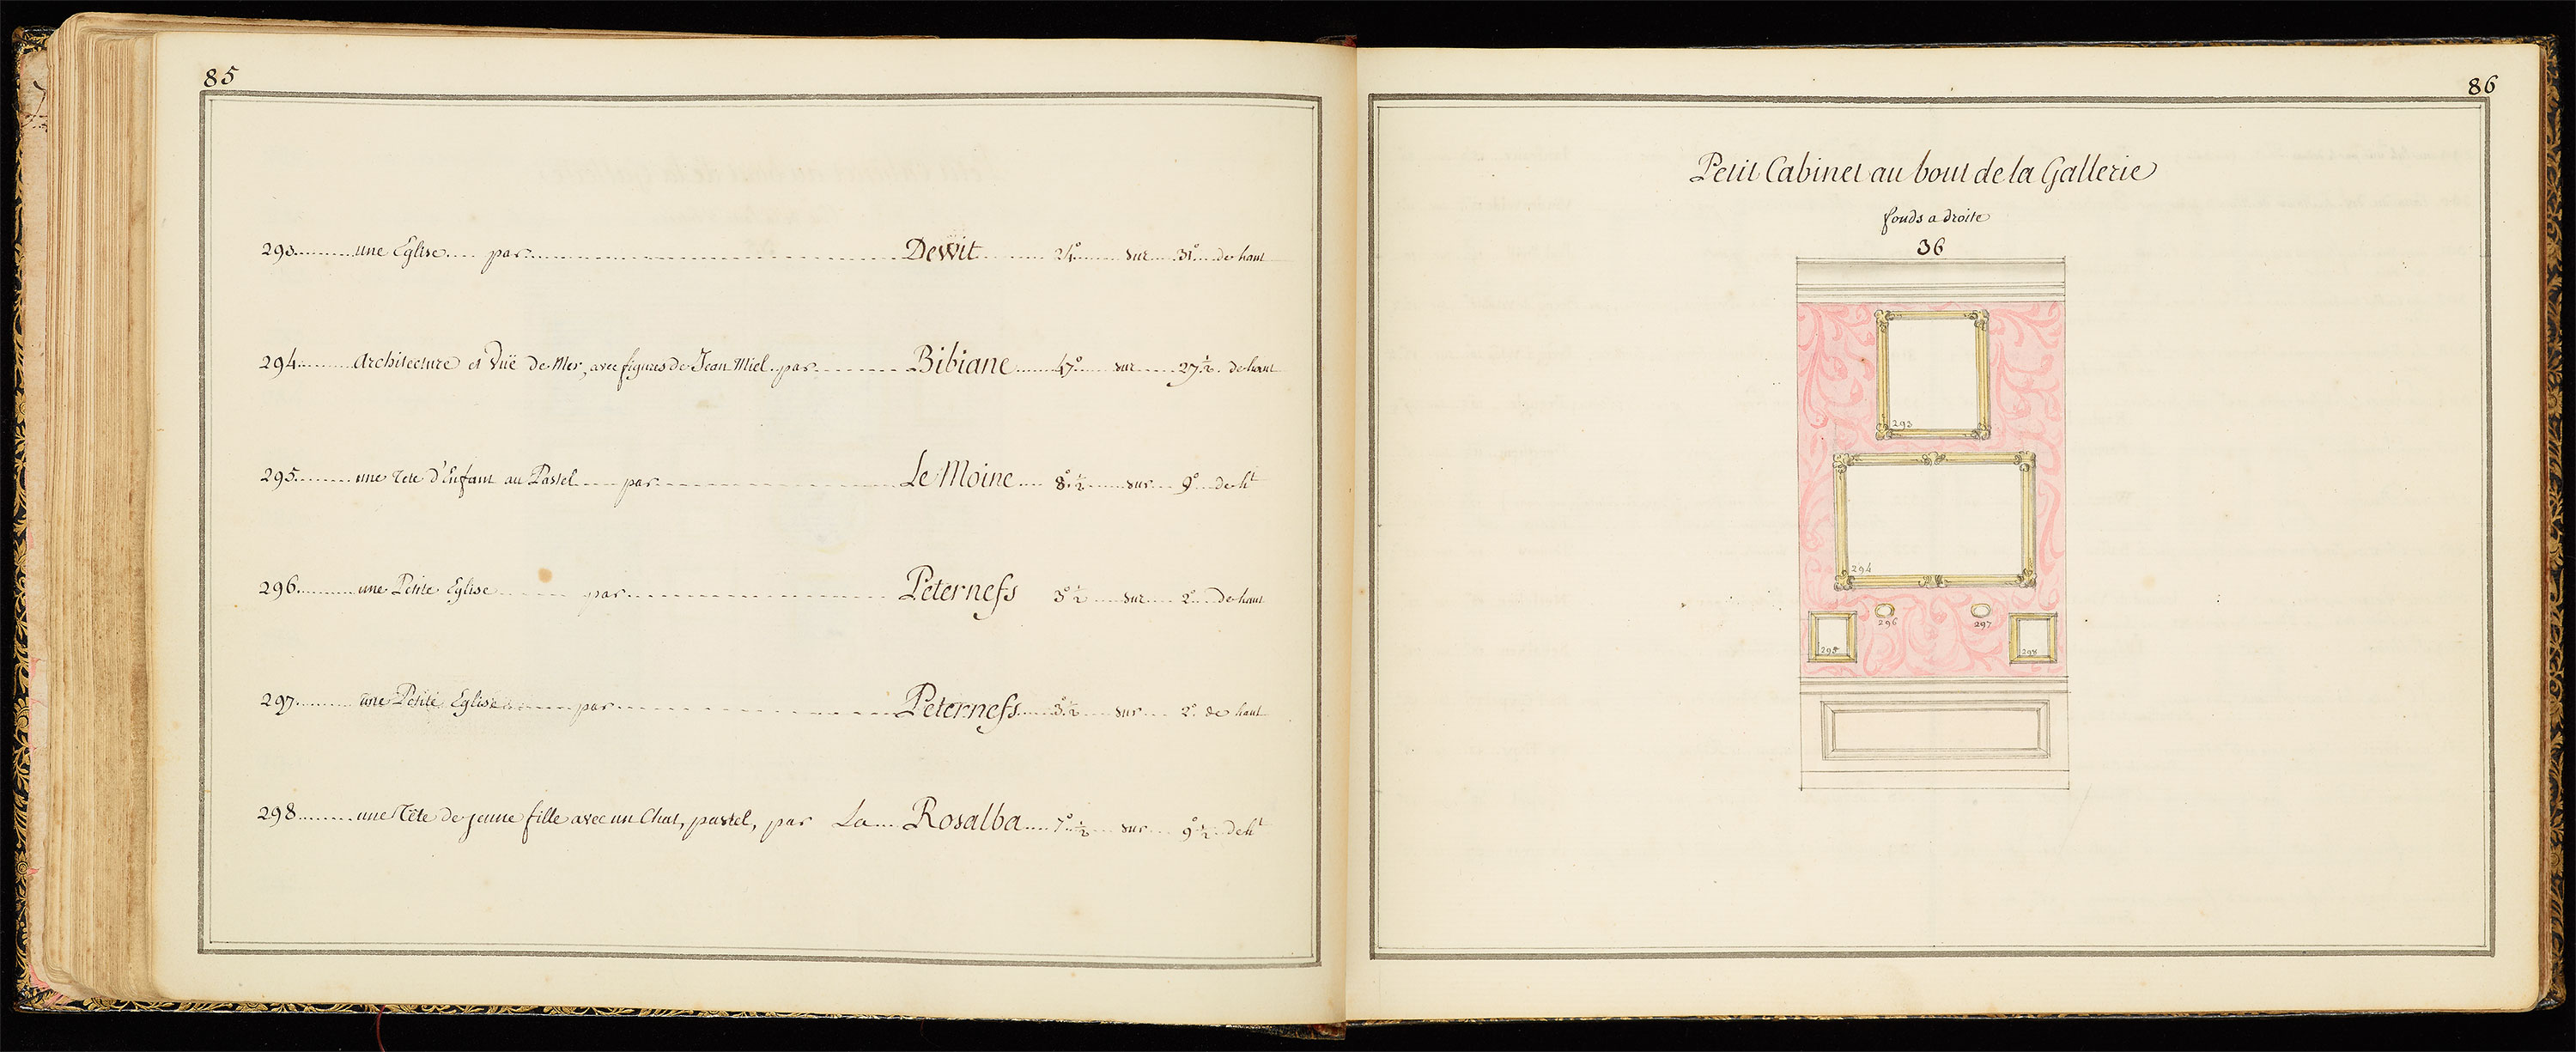 85
293 une Eglise par Dewit 24° sur 31° de haut
294 Architecture et Vuë de Mer, avec figures de Jean Miel par Bibiane 47° sur 27 ½ de haut
295 une Tete d'Enfant au Pastel par Le Moine 8° ½ sur 9° de ht
296 une Petite Eglise par Peternefs 3° ½ sur 2° de haut
297 une Petite Eglise par Peternefs 3° ½ sur 2° de haut
298 une Tête de jeune fille avec un Chat, pastel, par La Rosalba 7° ½ sur 9° ½ de ht
86
Petit Cabinet au bout de la Gallerie
fonds a droite
36
293
294
296
297
295
298